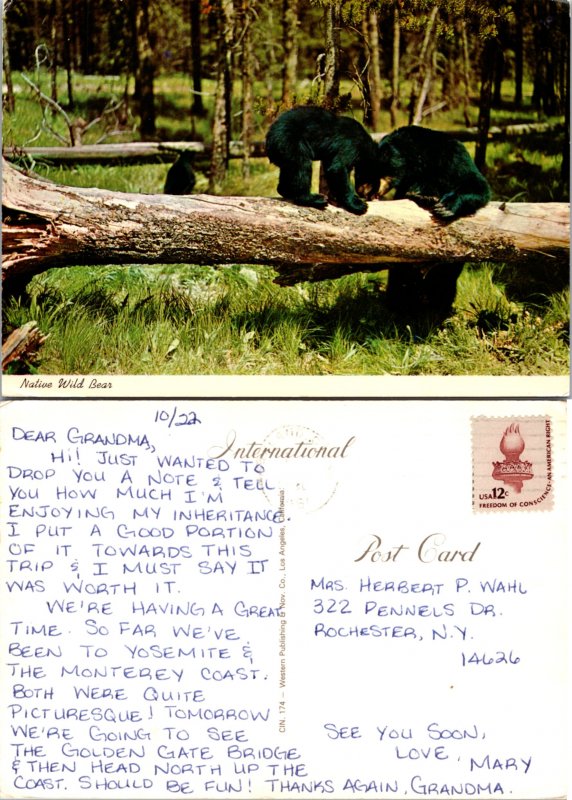 Native Wild Bear
10/22
DEAR GRANDMA,
HI! JUST WANTED TO
DROP YOU A NOTE & TELL
YOU HOW MUCH I'M
ENJOYING MY INHERITANCE.
I PUT A GOOD PORTION
OF IT TOWARDS THIS
TRIP & I MUST SAY IT
WAS WORTH IT.
WE'RE HAVING A GREAT
TIME. SO FAR WE'VE
BEEN TO YOSEMITE &
THE MONTEREY COAST.
BOTH WERE QUITE
PICTURESQUE! TOMORROW
WE'RE GOING TO SEE
THE GOLDEN GATE BRIDGE
& THEN HEAD NORTH UP THE
COAST. SHOULD BE FUN! THANKS AGAIN, GRANDMA.
SEE YOU SOON,
LOVE, MARY
International
Post Card
CIN. 174 — Western Publishing & Nov. Co., Los Angeles, California
USA 12c
FREEDOM OF CONSCIENCE-AN AMERICAN RIGHT
MRS. HERBERT P. WAHL
322 PENNELS DR.
ROCHESTER, N.Y.
14626